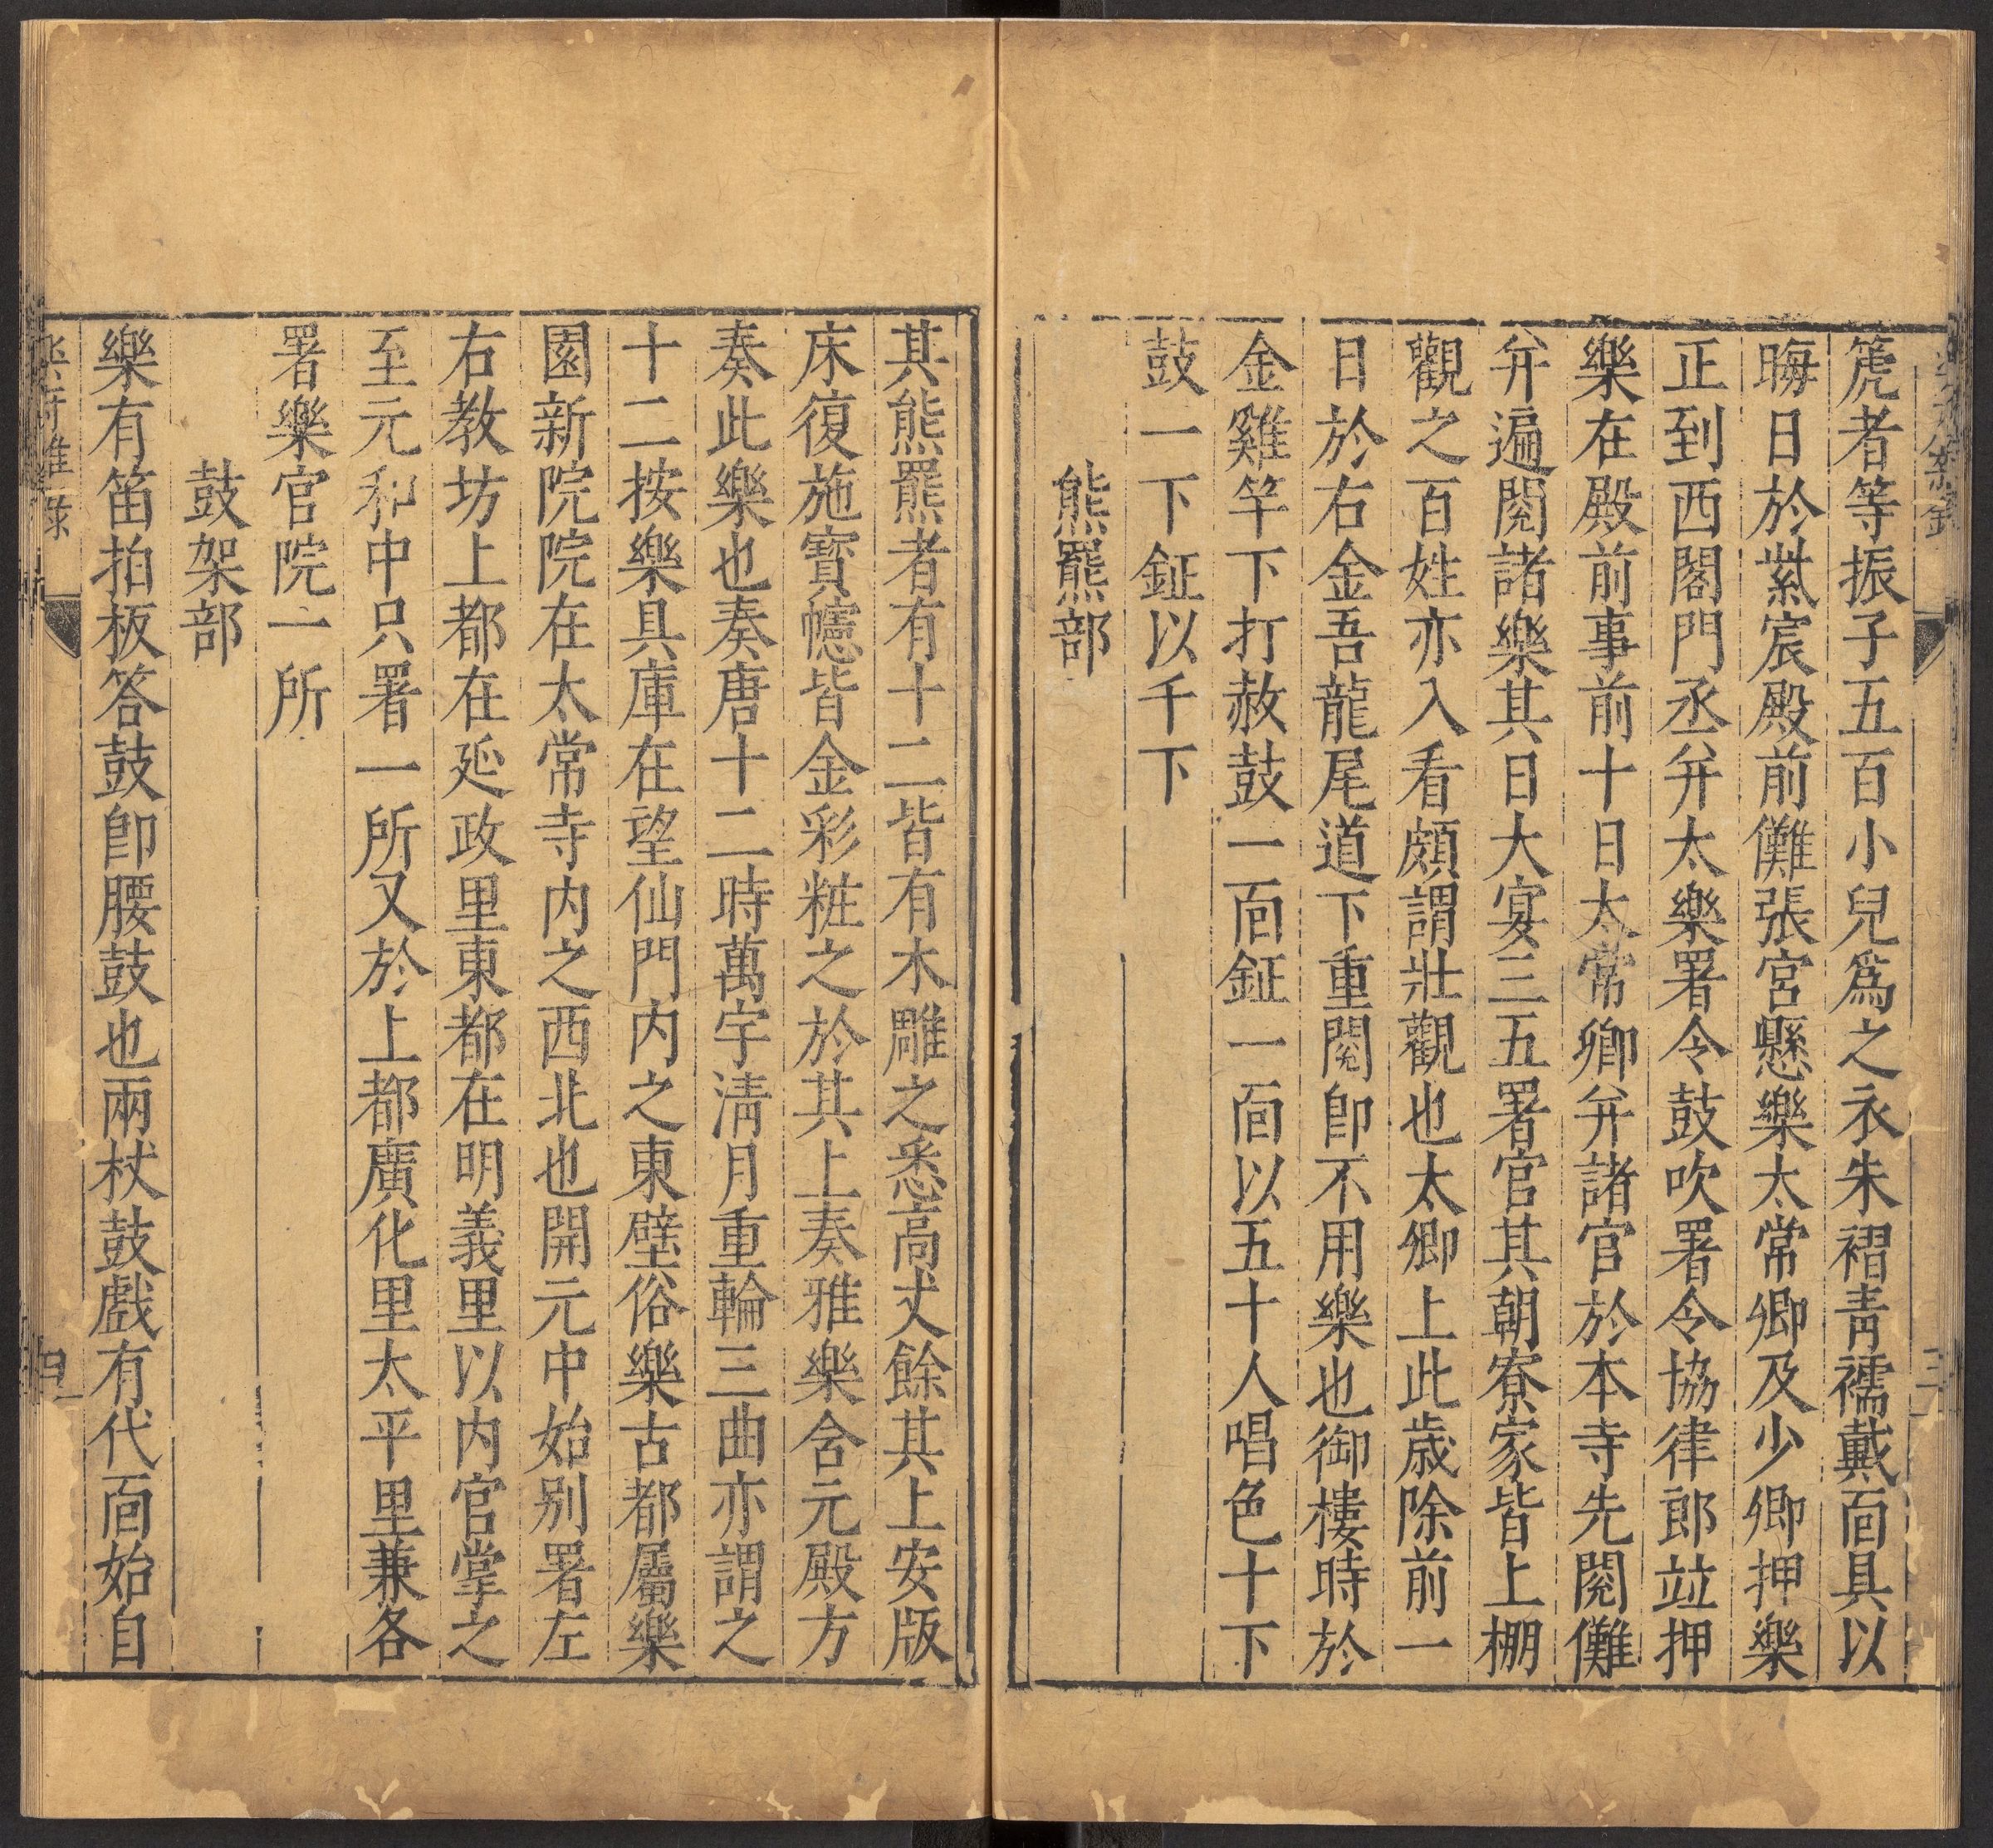 箎者等振子五百小兒爲之衣朱褶靑襦戴面具以
晦日於紫宸殿前儺張宮懸樂太常卿及少卿押樂
正到西閣門丞并太樂署令鼓吹署令協律郎竝押
樂在殿前事前十日太常卿并諸官於本寺先閱儺
并遍閱諸樂其日大宴三五署官其朝寮家皆上棚
觀之百姓亦入看頗謂壯觀也太卿上此歲除前一
日於右金吾龍尾道下重閱卽不用樂也御樓時於
金雞竿下打赦鼓一面鉦一面以五十人唱色十下
鼓一下鉦以千下
熊羆部
其熊羆者有十二皆有木雕之悉高丈餘其上安版
床復施寳幰皆金彩粧之於其上奏雅樂含元殿方
奏此樂也奏唐十二時萬宇淸月重輪三曲亦謂之
十二按樂具庫在望仙門内之東壁俗樂古都屬樂
園新院院在太常寺内之西北也開元中始别署左
右教坊上都在延政里東都在明義里以内官掌之
至元和中只署一所又於上都廣化里太平里兼各
署樂官院一所
鼓架部
樂有笛拍板答鼓卽腰鼓也兩杖鼓戲有代面始自